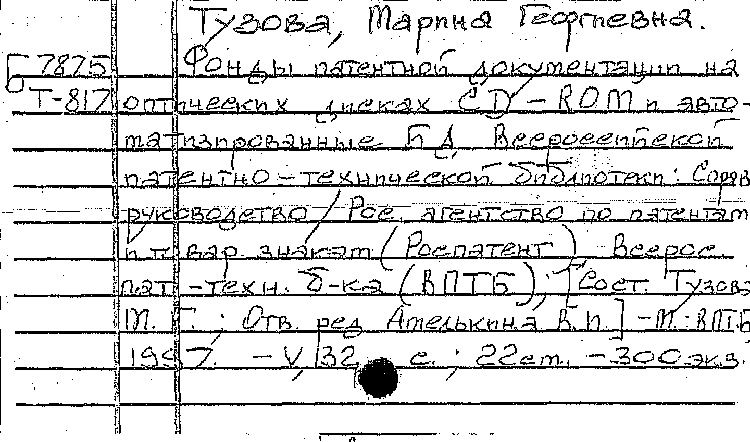 Тузова, Марина Георгиевна.
Б 7875 Фонды патентной документации на
Т-817 оптических дисках CD-ROM и авто-
матизированные БД Всероссийской
патентно-технической библиотеки: Справ.
руководство / Рос. агентство по патентам
и товар. знакам (Роспатент), Всерос.
пат.-техн. б-ка (ВПТБ); [Сост. Тузова
М. Г.; Отв. ред. Амелькина В.И.] - М.: ВПТБ,
1997. - V, 32 с.; 22 см. - 300 экз.